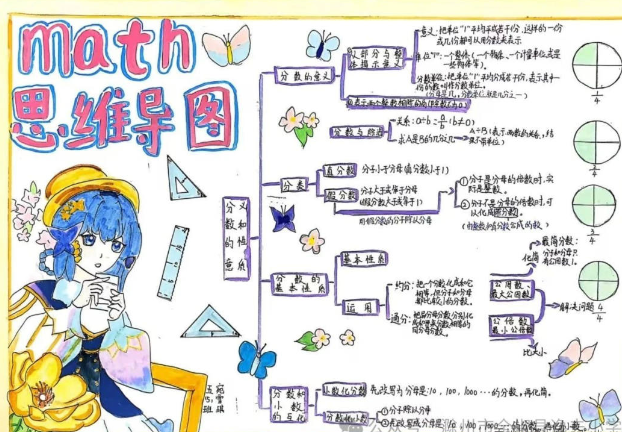 math
思维导图
分数的意义和性质
分数的意义
意义:把单位"1"平均分成若干份,这样的一份
或几份都可以用分数来表示
单位"1":一个整体(一个物体、一个计量单位或是
一些物体等)。
分数单位:把单位"1"平均分成若干份,表示其中一
份的数叫作分数单位。
1/4
分数与除法
关系:a÷b=a/b(b≠0)
求A是B的几分几
A÷B(表示两数的关系,结
果不带单位)
分类
真分数
分子小于分母(真分数小于1)
假分数
分子大于或等于分母
(假分数大于或等于1)
用假分数的分子除以分母
①分子是分母的倍数时,实
际是整数。
②分子不是分母的倍数时,可
以化成带分数。
3/4
分数的基本性质
基本性质
运用
约分:把一个分数化成和它
相等,但分子和分母
都比较小的分数。
通分:把异分母分数分别化
成和原来分数相等的
同分母分数。
最简分数:
分子和分母只
有公因数1。
化简
公因数、
最大公因数
公倍数
最小公倍数
解决问题
4/4
比大小
分数和小数的互化
小数化分数
先改写为分母是10,100,1000…的分数,再化简。
分数化小数
①分子除以分母
②先改写成分母是10,100,1000